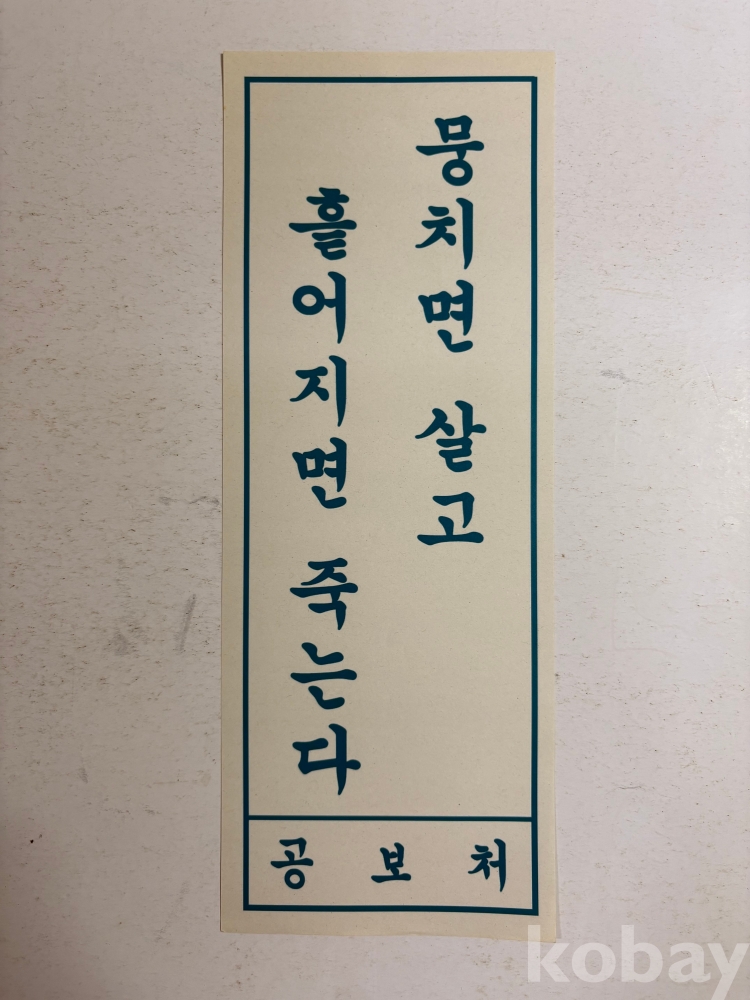 뭉치면 살고
흩어지면 죽는다
공보처
kobay